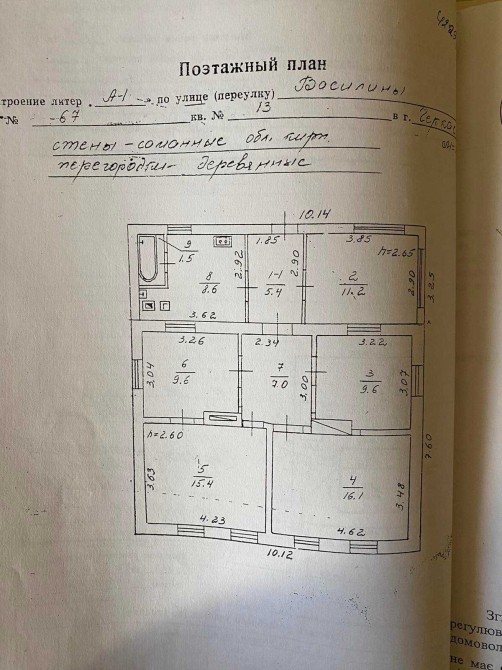 Поэтажный план
строение литер „А-I“ по улице (переулку) Василины
№ -67 кв. № 13 в г.
стены - саманные обл. кирп.
перегородки - деревянные
10.14
9
1.5
1.85
3.85
h=2.65
8
8.6
2.92
1-1
5.4
2.90
2
11.2
2.90
3.25
3.62
3.26
2.34
3.22
3.04
6
9.6
7
7.0
3.00
3
9.6
3.07
7.60
h=2.60
3.63
5
15.4
4
16.1
3.48
4.23
4.62
10.12
Зг
регулюв
домовол
не має